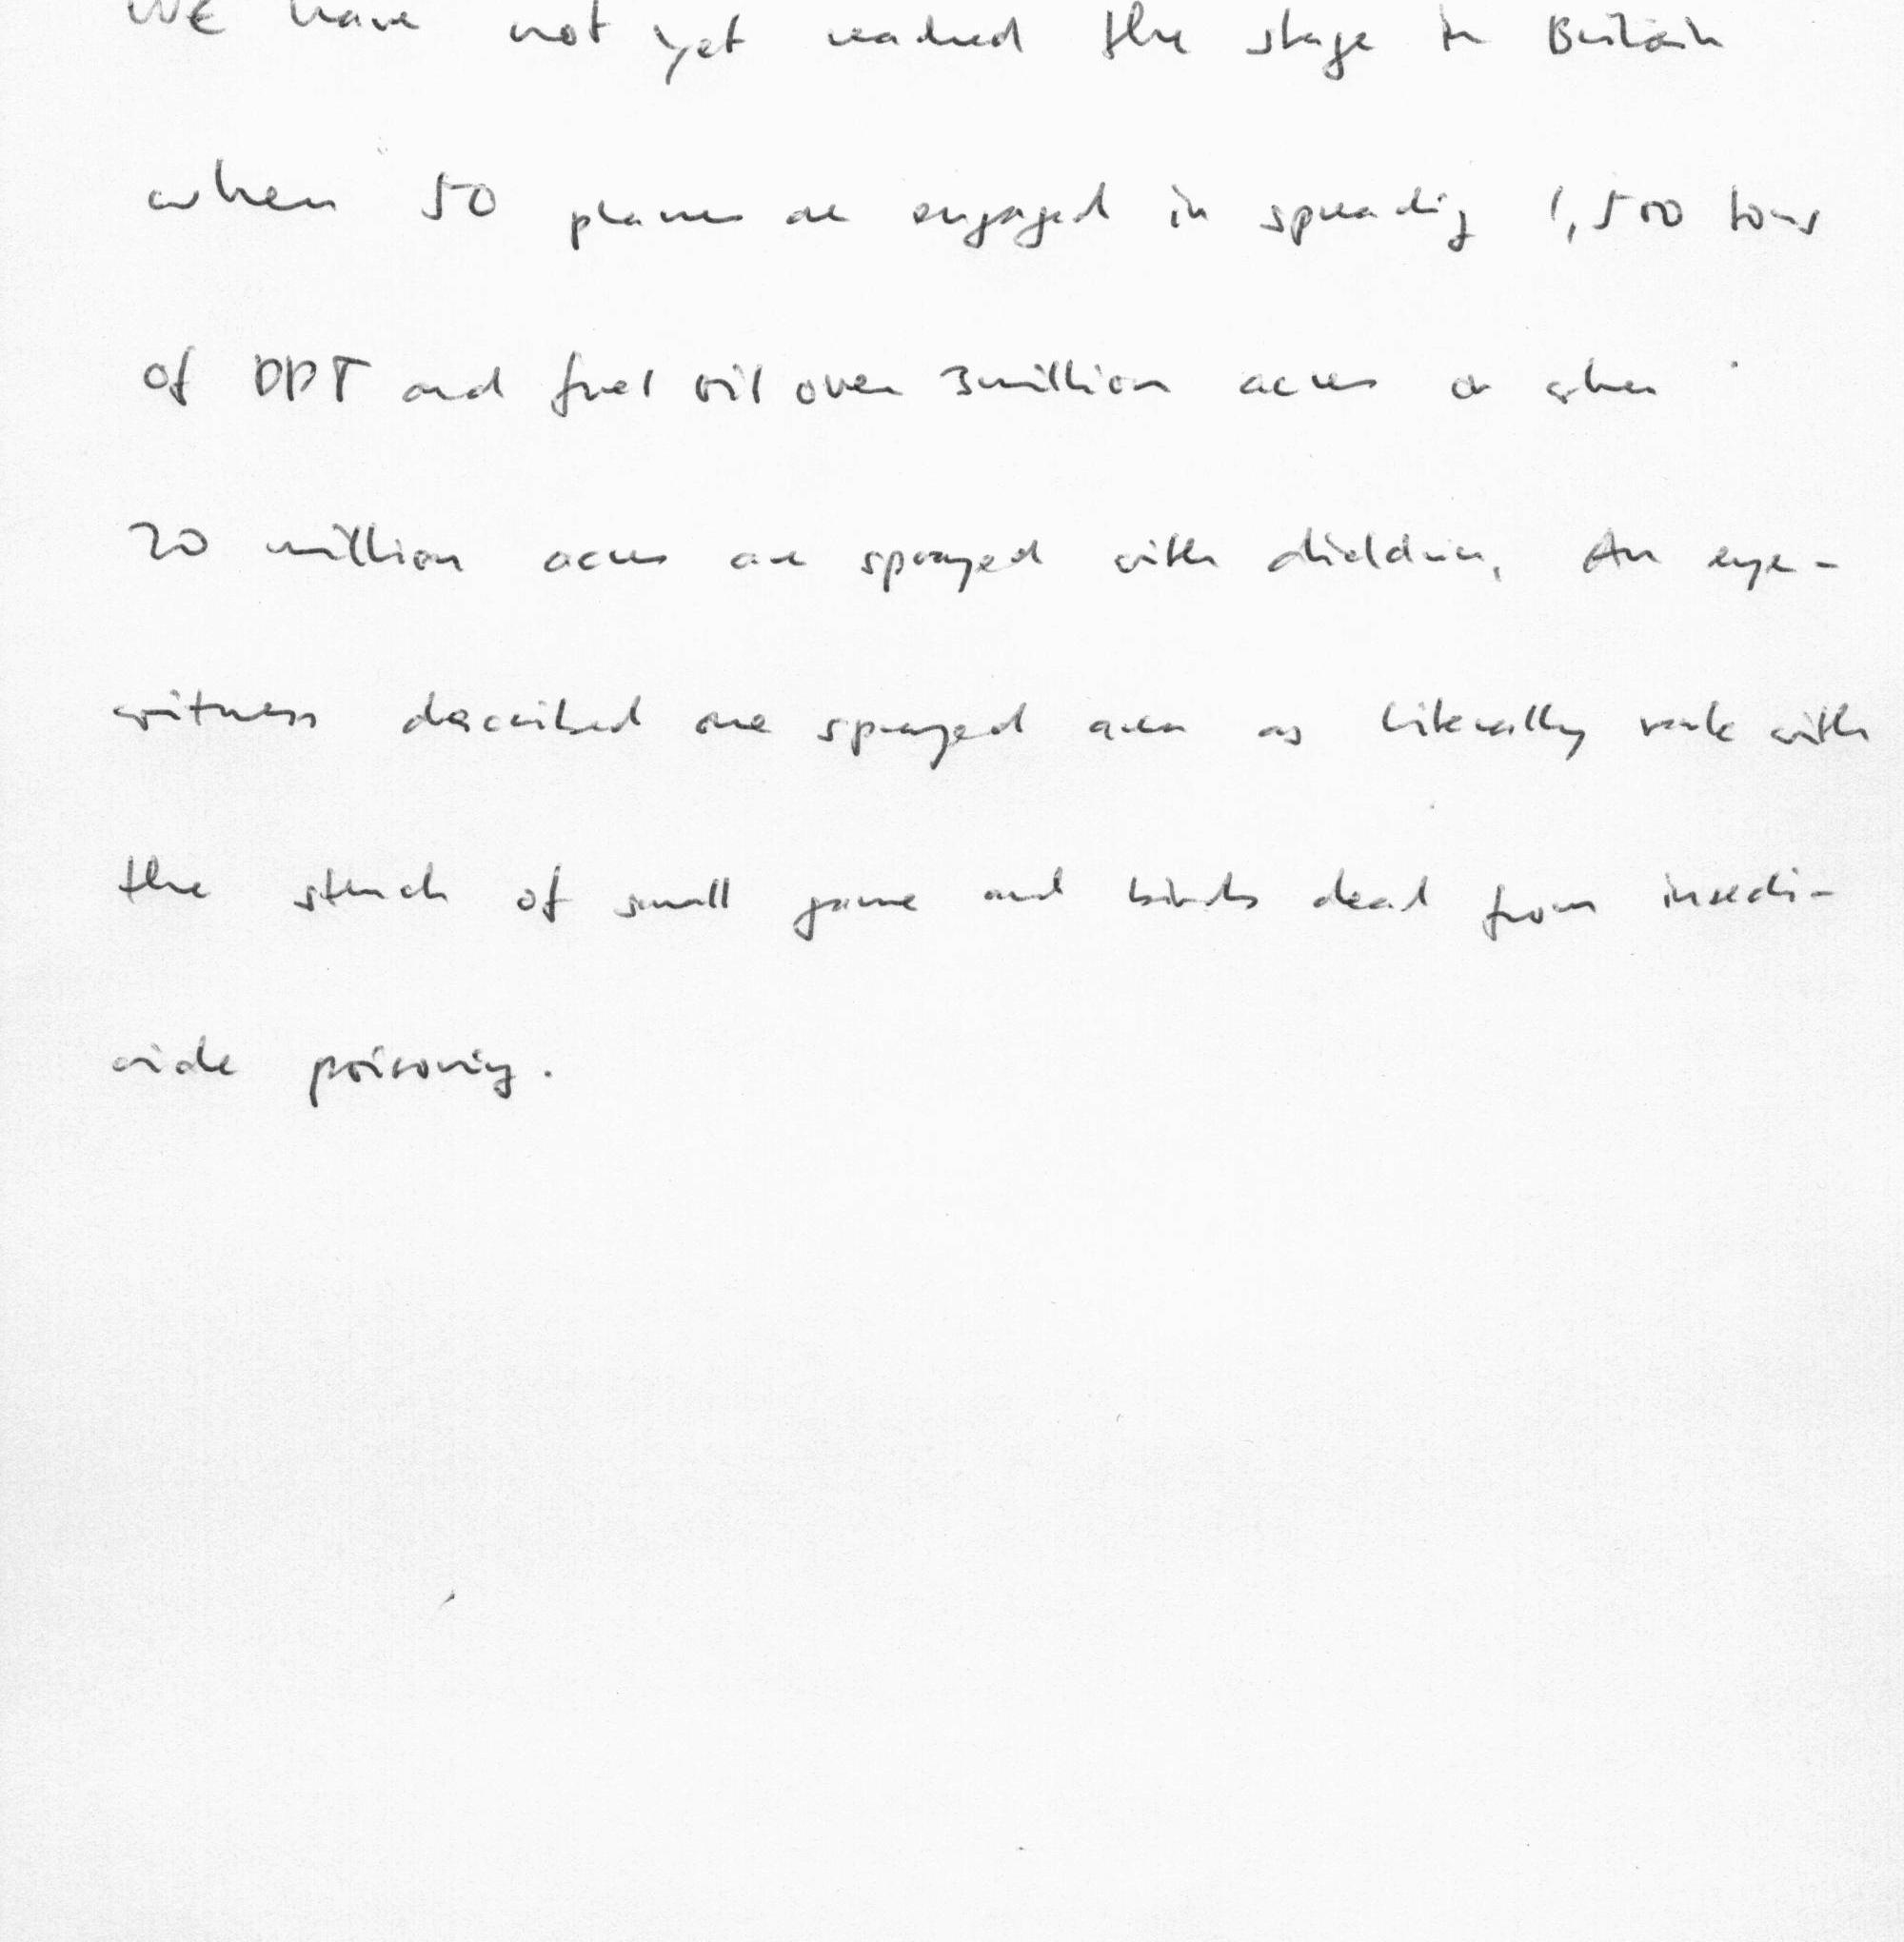 WE have not yet reached the stage in Britain
when 50 planes are engaged in spreading 1,500 tons
of DDT and fuel oil over 3 million acres or when
20 million acres are sprayed with dieldrin. An eye-
witness described one sprayed area as literally rank with
the stench of small game and birds dead from insecti-
cide poisoning.